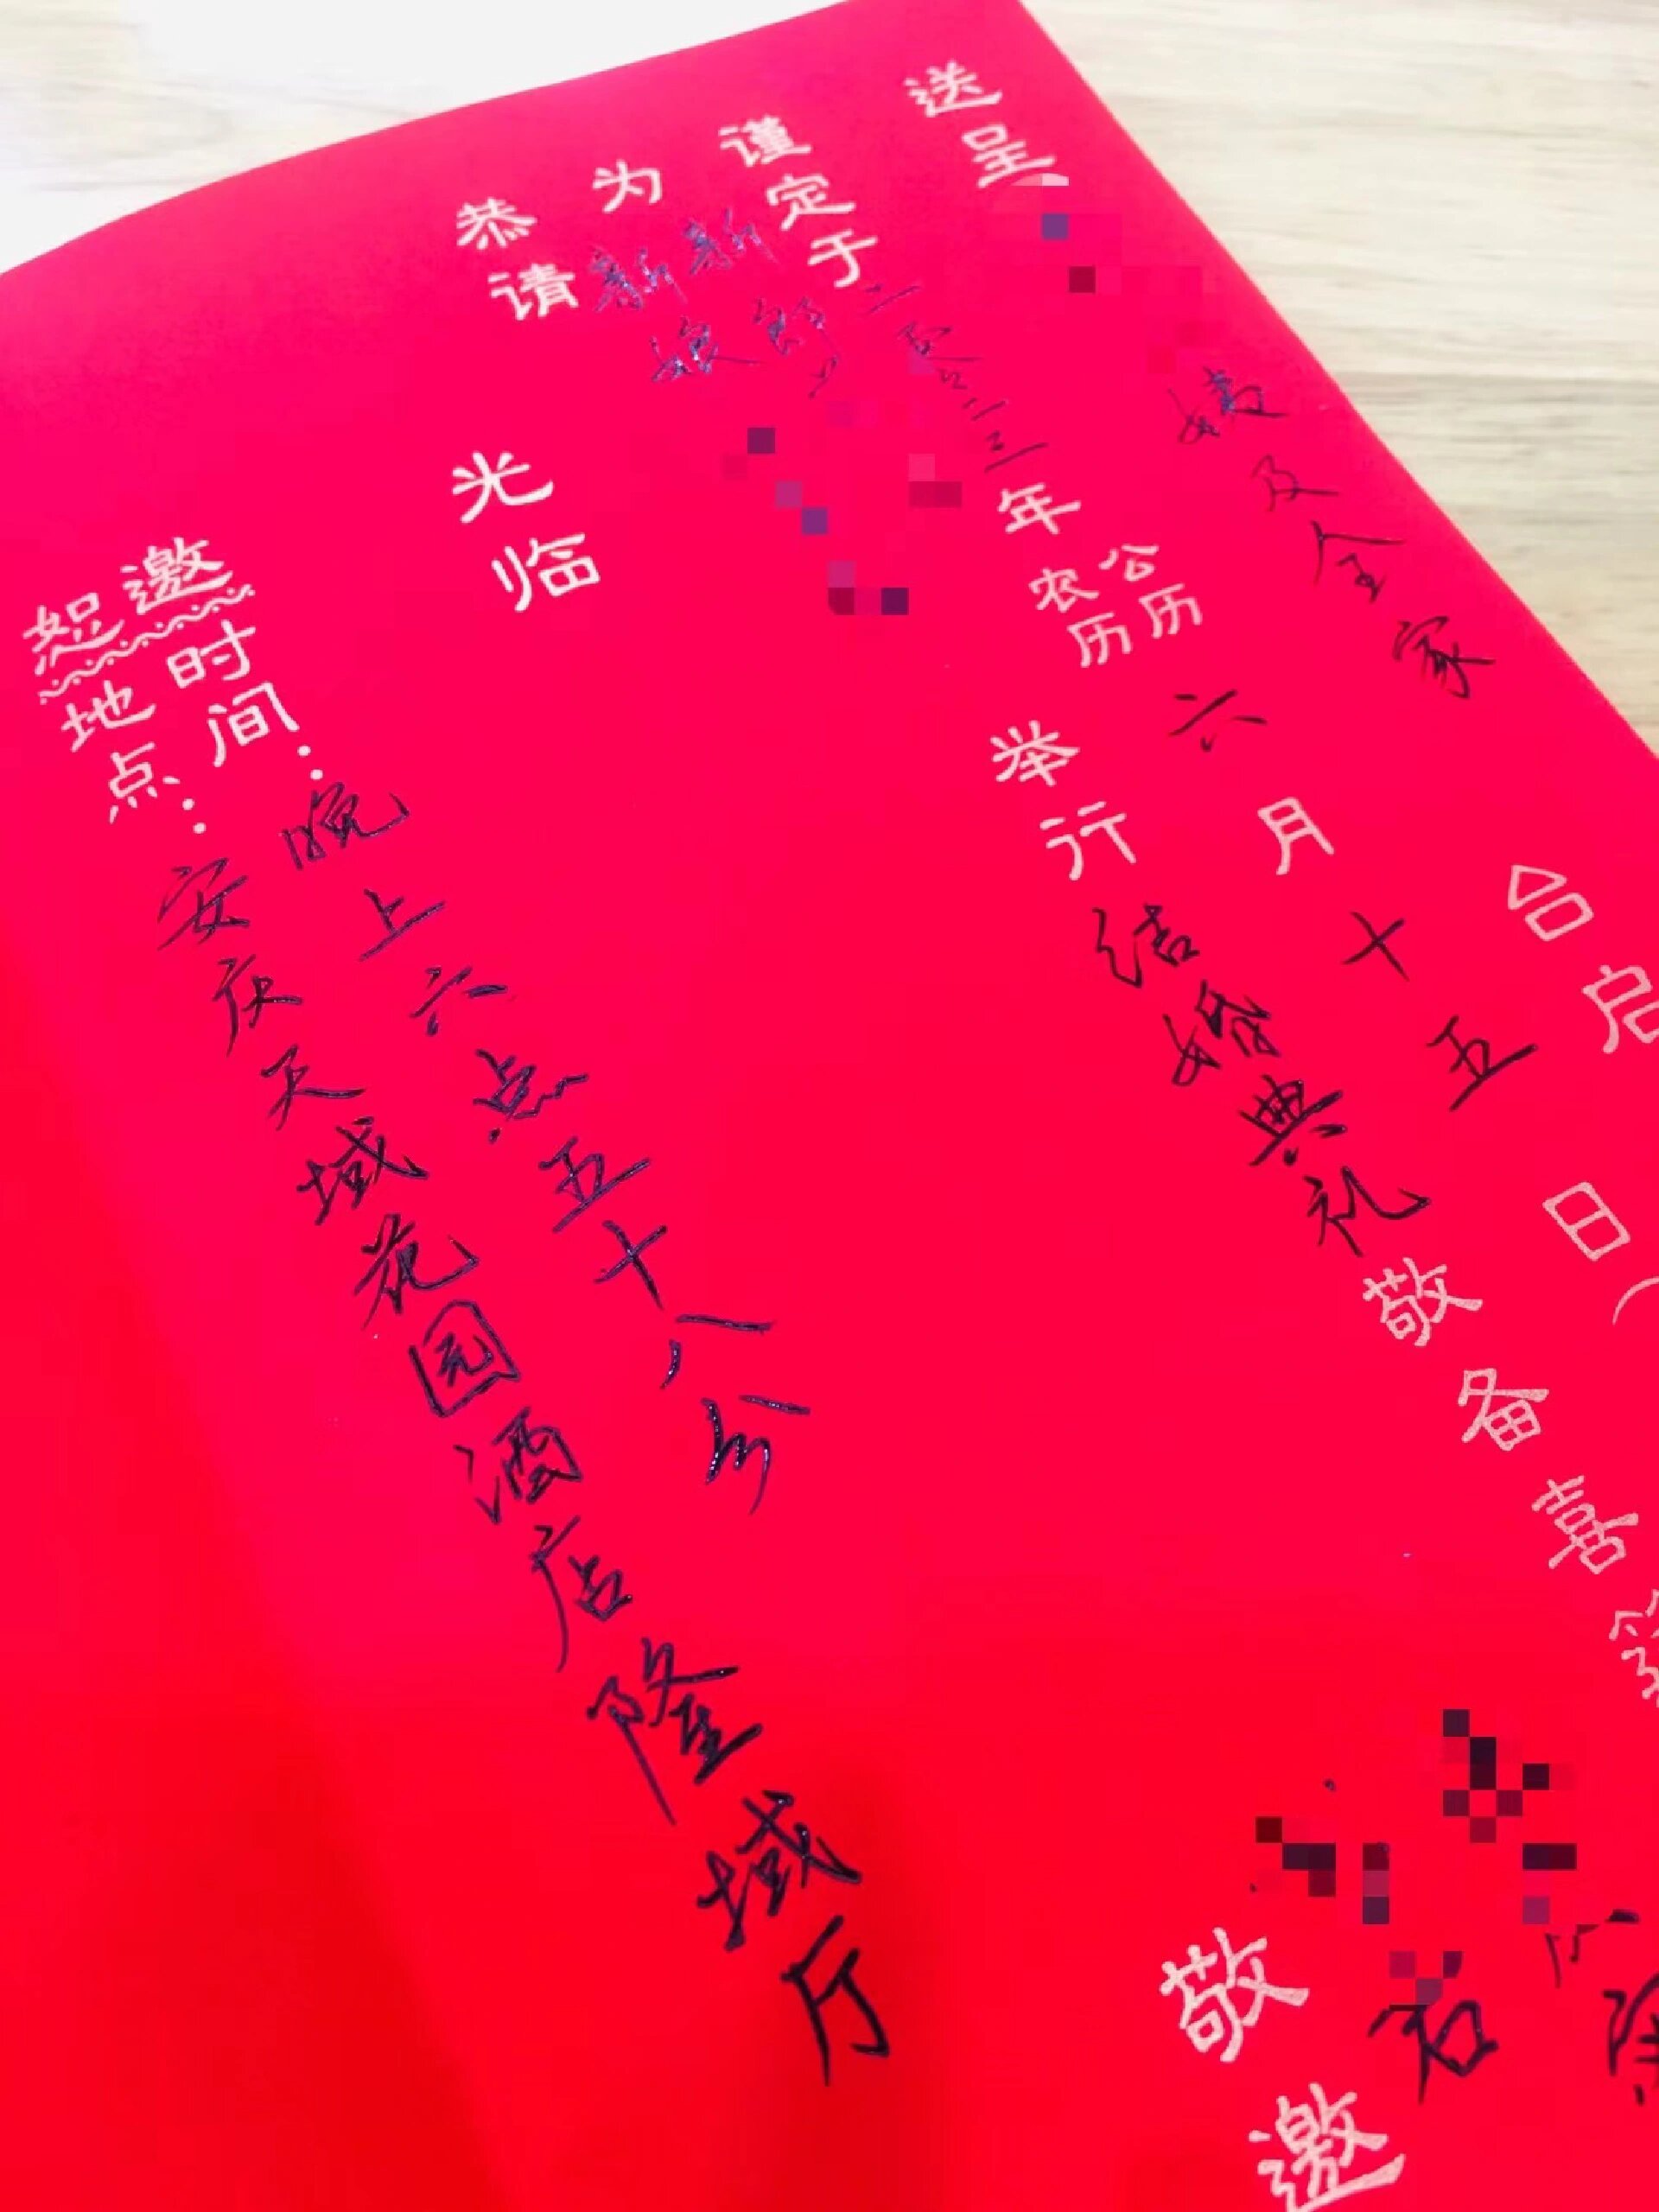 送呈 婧及全家 台启
谨定于二零二三年公历农历六月十五日(
为新郎新娘 举行结婚典礼 敬备喜筵
恭请
光临
敬邀
恕邀
时间：晚上六点五十八分
地点：安庆天域花园酒店隆域厅